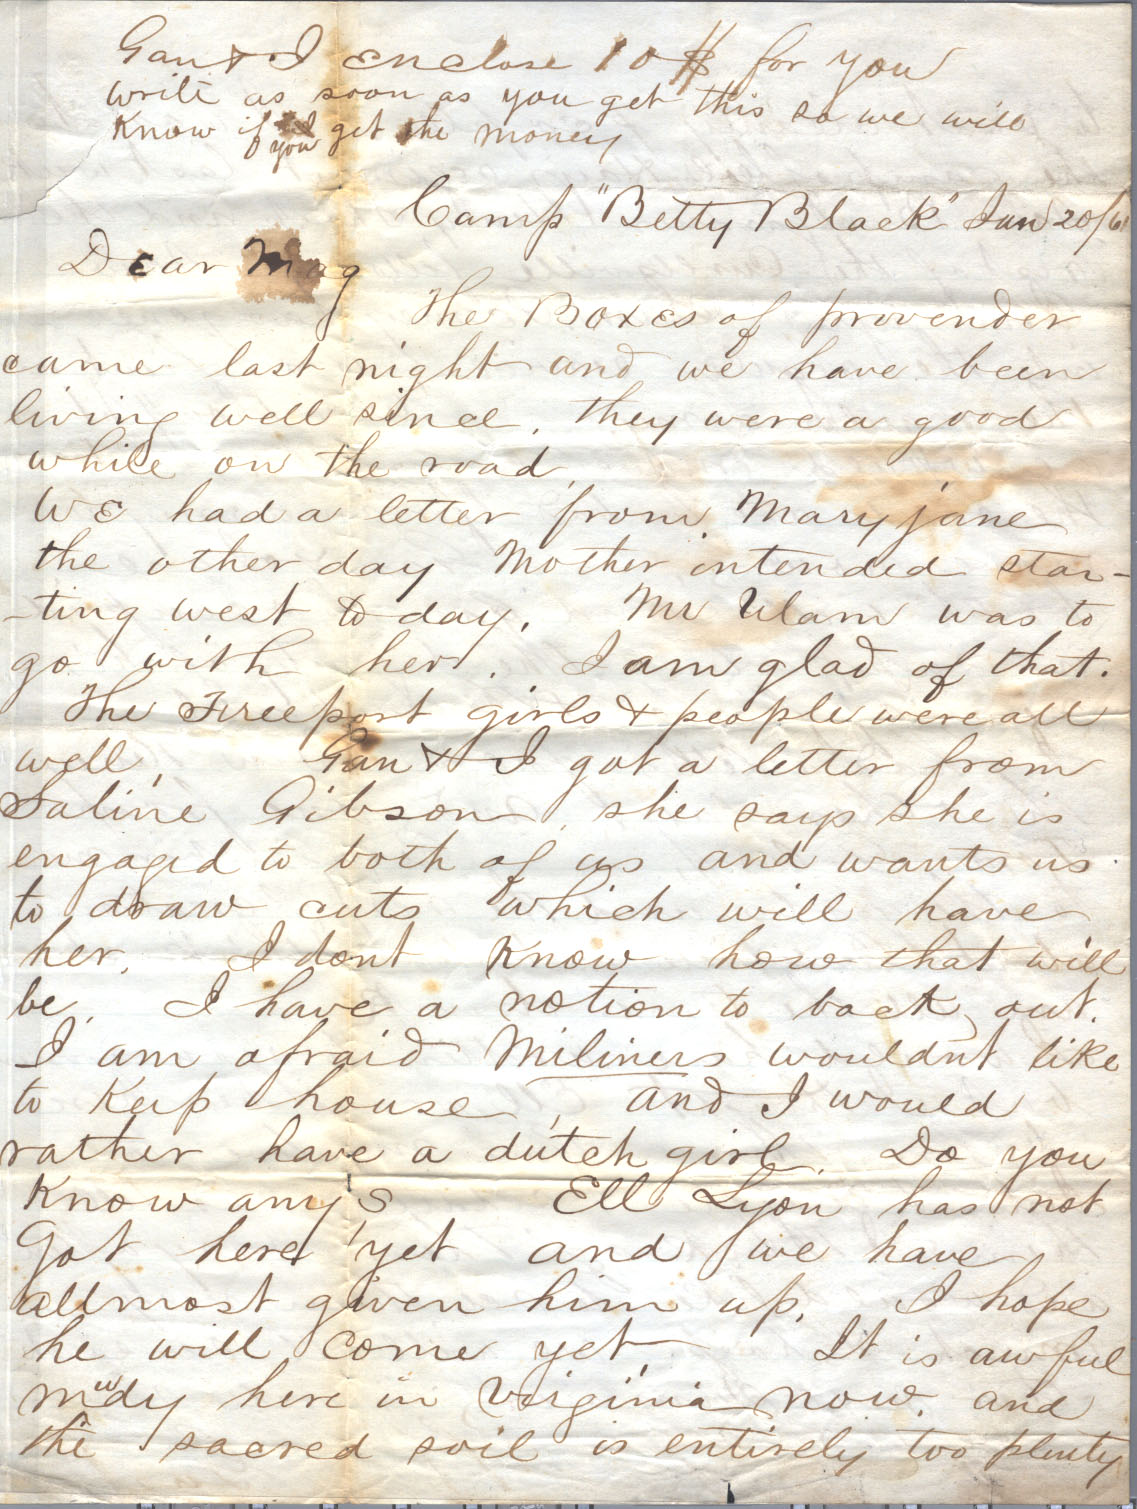 Gan & I enclose 10$ for you
write as soon as you get this so we will
know if you get the money
Camp "Betty Black" Jan 20/61
Dear Mag
The Boxes of provender
came last night and we have been
living well since. they were a good
while on the road.
We had a letter from Mary jane
the other day Mother intended star-
-ting west to day. Mr Ulam was to
go with her. I am glad of that.
The Freeport girls & people were all
well. Gan & I got a letter from
Saline Gibson, she says she is
engaged to both of us and wants us
to draw cuts which will have
her. I dont know how that will
be. I have a notion to back out.
I am afraid Miliners wouldnt like
to keep house, and I would
rather have a dutch girl. Do you
know any? Ell Lyon has not
Got here yet and we have
allmost given him up. I hope
he will come yet. It is awful
mudy here in Virginia now. and
the sacred soil is entirely too plenty